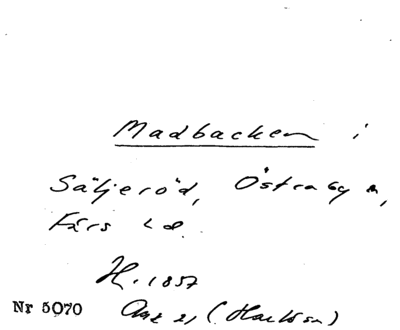 Madbacken i
Säljeröd, Östraby sn,
Färs hd.
H. 1857
Nr 5070 Ant 21 (Hansson)